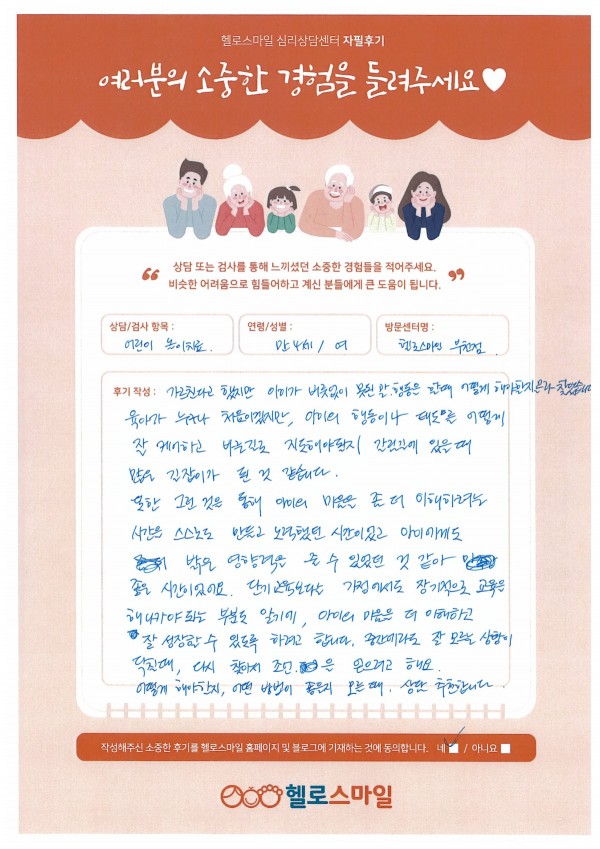 헬로스마일 심리상담센터 자필후기
여러분의 소중한 경험을 들려주세요♥
“ 상담 또는 검사를 통해 느끼셨던 소중한 경험들을 적어주세요.
비슷한 어려움으로 힘들어하고 계신 분들에게 큰 도움이 됩니다. ”
상담/검사 항목 :
어린이 놀이치료
연령/성별 :
만 4세 / 여
방문센터명 :
헬로스마일 부천점
후기 작성 : 가르친다고 했지만 아이가 버릇없이 못된 행동을 할때 어떻게 해야한지
육아가 누구나 처음이겠지만, 아이의 행동이나 태도를 어떻게
잘 케어하고 바른길로 지도해야할지 갈림길에 있을때
많은 길잡이가 된 것 같습니다.
또한 그런 것을 통해 아이의 마음을 좀 더 이해하려는
시간을 스스로도 만들고 노력했던 시간이었고 아이에게도
밝은 영향력을 줄 수 있었던 것 같아
좋은 시간이었어요. 단기교육보다는 가정에서도 장기적으로 교육을
해나가야 되는 부분도 알기에, 아이의 마음을 더 이해하고
잘 성장할 수 있도록 하려고 합니다. 중간에라도 잘 모르는 상황이
닥칠때, 다시 찾아와 조언을 얻으려고 해요.
어떻게 해야한지, 어떤 방법이 좋은지 모를때. 상담 추천합니다.
작성해주신 소중한 후기를 헬로스마일 홈페이지 및 블로그에 기재하는 것에 동의합니다. 네 / 아니요
헬로스마일